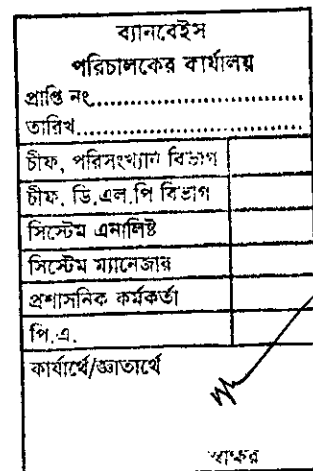 ব্যানবেইস
পরিচালকের কার্যালয়
প্রাপ্তি নং..............................
তারিখ.................................
চীফ, পরিসংখ্যান বিভাগ
চীফ, ডি.এল.পি বিভাগ
সিস্টেম এনালিষ্ট
সিস্টেম ম্যানেজার
প্রশাসনিক কর্মকর্তা
পি.এ.
কার্যার্থে/জ্ঞাতার্থে
স্বাক্ষর